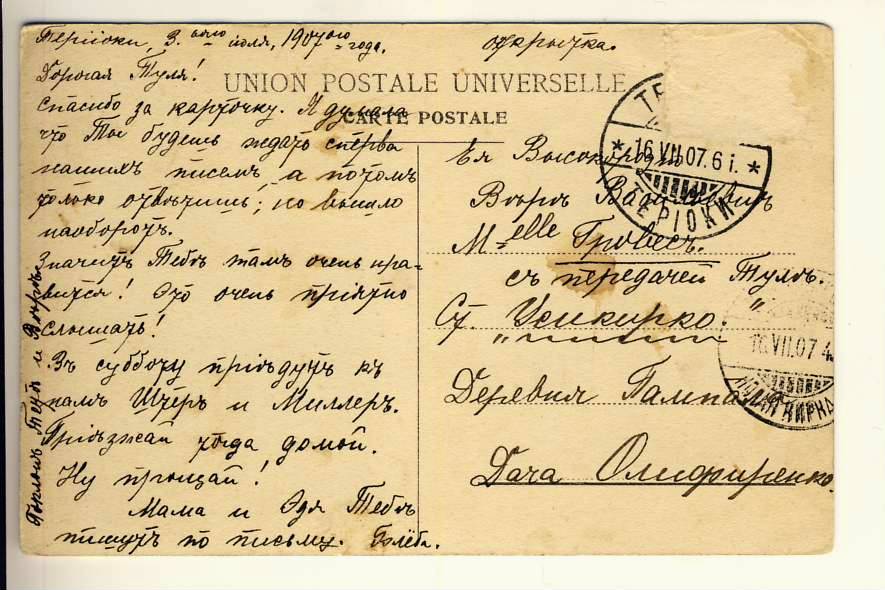 Терiоки, 3.его iюля, 1907ого года.
открытка.
Дорогая Туля!
UNION POSTALE UNIVERSELLE
спасибо за карточку. Я думала
CARTE POSTALE
что Ты будешь ждать сперва
нашихъ писемъ, а потомъ
только отвѣчишь; но вышло
наоборотъ.
Значитъ Тебѣ тамъ очень нра-
вится! Это очень прiятно
слышать!
Въ субботу прiѣдутъ къ
намъ Шчёръ и Миллеръ.
Прiѣзжай тогда домой.
Ну прощай!
Мама и Эдя Тебѣ
пишутъ по письму. Глѣба.
Поклонъ Тебѣ и Вѣрѣ.
Ея Высокородiю
Вѣрѣ
Melle Гровесъ.
съ передачей Тулѣ.
Ст. Усикирко.
Деревня
Дача Олиференко.
ТЕ
* 16.VII.07.6 i. *
ТЕРIОКИ
16.VII.07 4
КИРКА